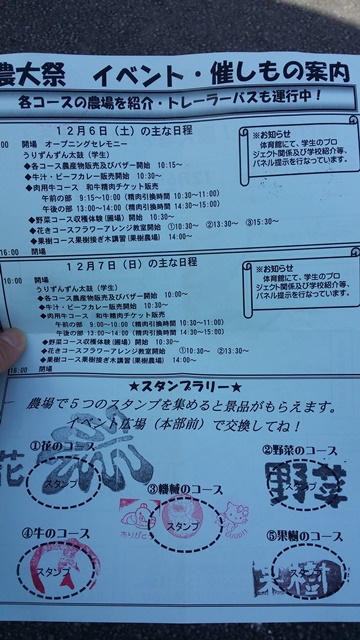 農大祭　イベント・催しもの案内
各コースの農場を紹介・トレーラーバスも運行中！
１２月６日（土）の主な日程
00　開場　オープニングセレモニー
うりずんずん太鼓（学生）
◆各コース農産物販売及びバザー開始　10:15～
◆牛汁・ビーフカレー販売開始　10:30～
◆肉用牛コース　和牛精肉チケット販売
午前の部　9:15～10:00（精肉引換時間 10:30～11:00）
午後の部 13:00～14:00（精肉引換時間 14:30～15:00）
◆野菜コース収穫体験（圃場）開始　10:30～
◆花きコースフラワーアレンジ教室開始　①10:30～　②13:30～　③15:30～
◆果樹コース果樹接ぎ木講習（果樹農場）　14:00～
16:00　閉場
※お知らせ
体育館にて、学生のプロ
ジェクト関係及び学校紹介等、
パネル提示を行なっています。
１２月７日（日）の主な日程
10:00　開場
うりずんずん太鼓（学生）
◆各コース農産物販売及びバザー開始　10:00～
◆牛汁・ビーフカレー販売開始　10:30～
◆肉用牛コース　和牛精肉チケット販売
午前の部　9:00～10:00（精肉引換時間 10:30～11:00）
午後の部 13:00～14:00（精肉引換時間 14:30～15:00）
◆野菜コース収穫体験（圃場）開始　10:30～
◆花きコースフラワーアレンジ教室開始　①10:30～　②13:30～
◆果樹コース果樹接ぎ木講習（果樹農場）　14:00～
16:00　閉場
※お知らせ
体育館にて、学生のプロ
ジェクト関係及び学校紹介等、
パネル提示を行なっています。
★スタンプラリー★
農場で５つのスタンプを集めると景品がもらえます。
イベント広場（本部前）で交換してね！
①花のコース
花
スタンプ
②野菜のコース
野菜
スタンプ
③機械のコース
スタンプ
④牛のコース
スタンプ
⑤果樹のコース
果樹
スタンプ